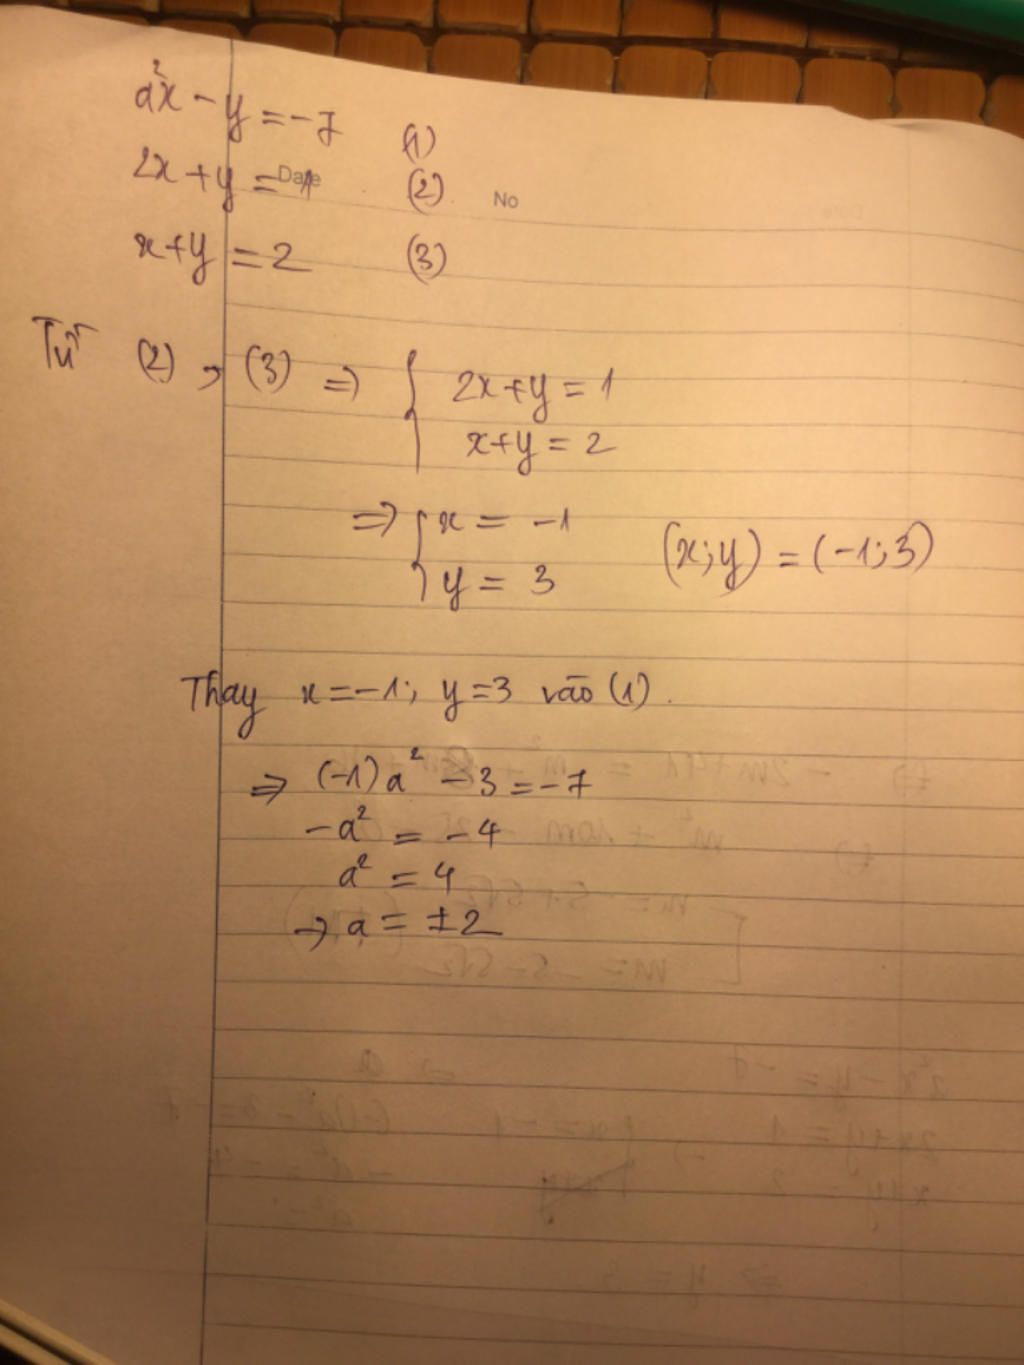 a²x - y = -7 (1)
2x + y = 1 (2)
Date
No
x + y = 2 (3)
Từ (2), (3) => { 2x + y = 1
x + y = 2
=> { x = -1
y = 3 (x; y) = (-1; 3)
Thay x = -1; y = 3 vào (1).
=> (-1)a² - 3 = -7
-a² = -4
a² = 4
→ a = ±2